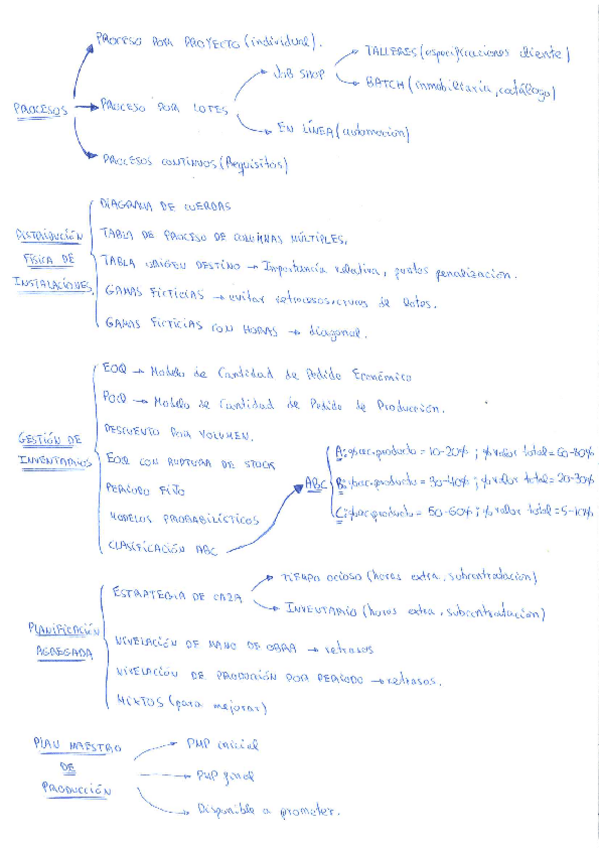 PROCESO POR PROYECTO (individual).
TALLERES (especificaciones cliente)
JOB SHOP
BATCH (inmobiliaria, catálogo)
PROCESOS
PROCESO POR LOTES
EN LÍNEA (automoción)
PROCESOS CONTINUOS (Requisitos)
DIAGRAMA DE CUERDAS
DISTRIBUCIÓN
TABLA DE PROCESO DE COLUMNAS MÚLTIPLES.
FÍSICA DE
TABLA ORIGEN DESTINO → Importancia relativa, puntos penalización.
INSTALACIONES
GAMAS FICTICIAS → evitar retrocesos, cruces de lotes.
GAMAS FICTICIAS CON HORAS → diagonal.
EOQ → Modelo de Cantidad de Pedido Económico
POQ → Modelo de Cantidad de Pedido de Producción.
DESCUENTO POR VOLUMEN.
GESTIÓN DE
INVENTARIOS
EOQ CON RUPTURA DE STOCK
PERÍODO FIJO
MODELOS PROBABILÍSTICOS
CLASIFICACIÓN ABC
ABC
A: producto = 10-20% ; % valor total = 60-80%
B: producto = 30-40% ; % valor total = 20-30%
C: producto = 50-60% ; % valor total = 5-10%
ESTRATEGIA DE CAZA
TIEMPO OCIOSO (horas extra, subcontratación)
INVENTARIO (horas extra, subcontratación)
PLANIFICACIÓN
AGREGADA
NIVELACIÓN DE MANO DE OBRA → retrasos
NIVELACIÓN DE PRODUCCIÓN POR PERÍODO → retrasos.
MIXTOS (para mejorar)
PLAN MAESTRO
DE
PRODUCCIÓN
PMP inicial
PMP final
Disponible a prometer.